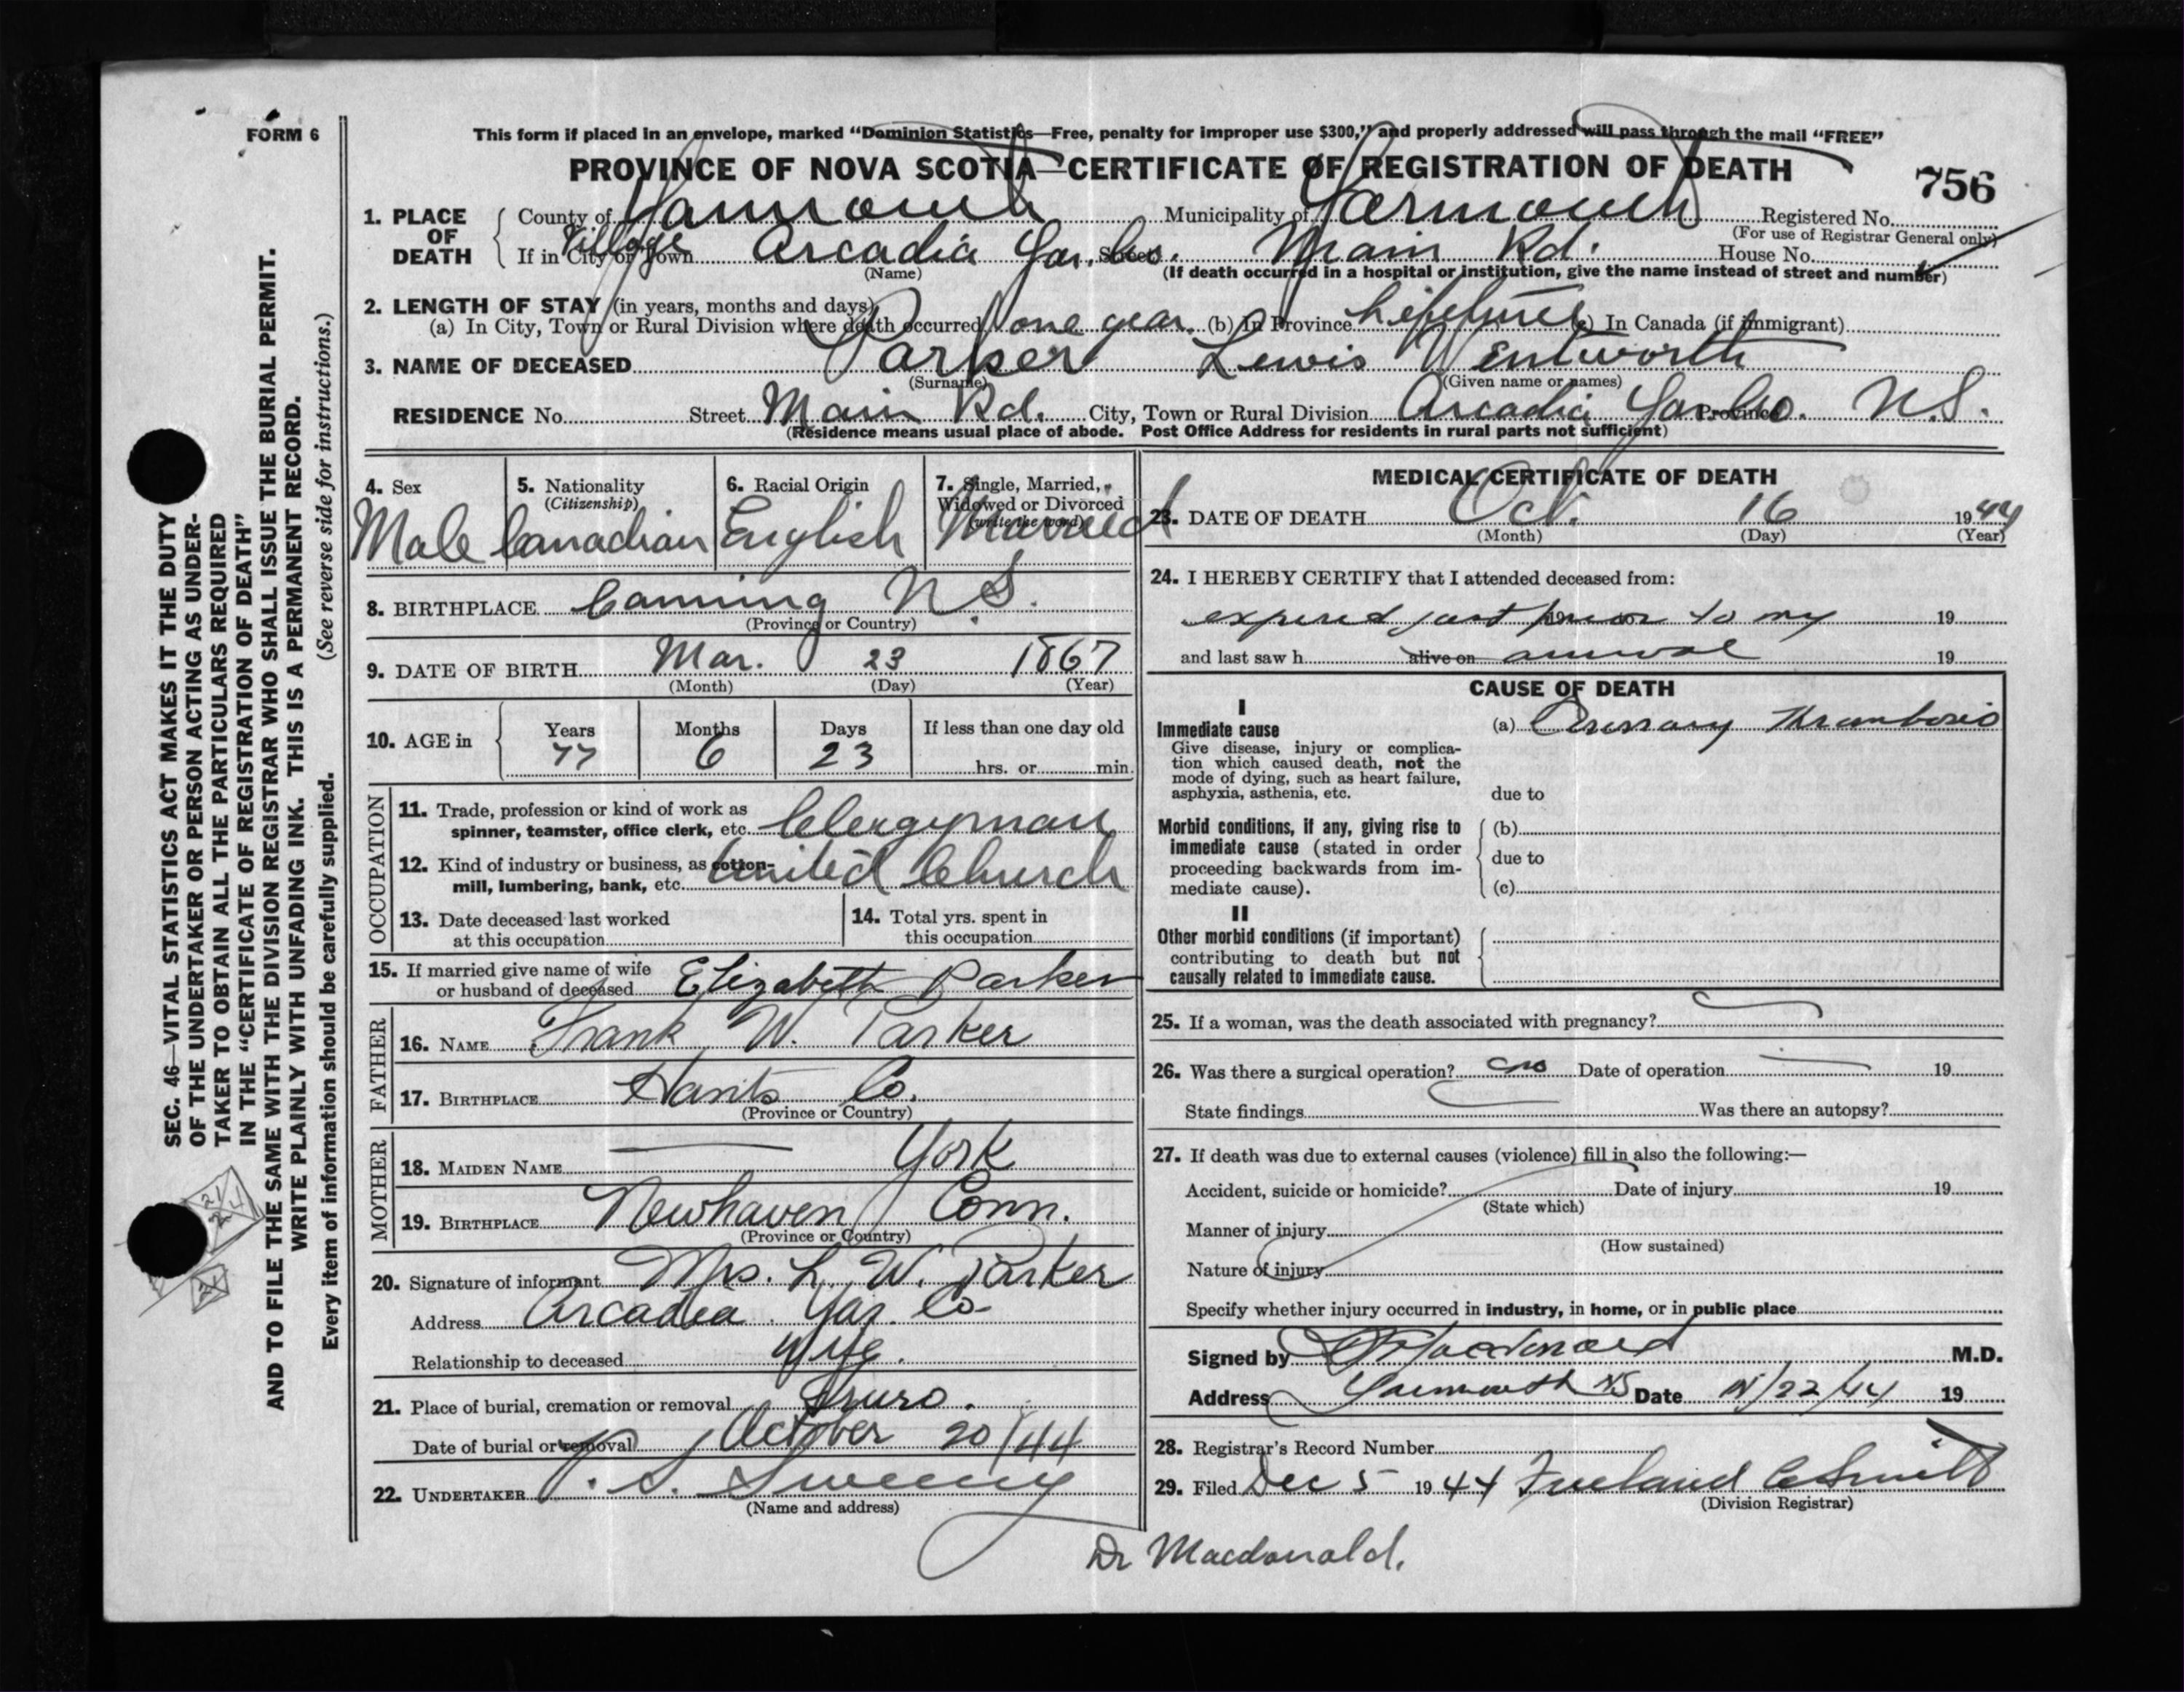 FORM 6
This form if placed in an envelope, marked “Dominion Statistics—Free, penalty for improper use $300,” and properly addressed will pass through the mail “FREE”
PROVINCE OF NOVA SCOTIA—CERTIFICATE OF REGISTRATION OF DEATH
756
1. PLACE OF DEATH County of Yarmouth Municipality of Yarmouth Registered No.
(For use of Registrar General only)
If in City or Town Village Arcadia Yar. Co. Street Main Rd. House No.
(Name) (If death occurred in a hospital or institution, give the name instead of street and number)
2. LENGTH OF STAY (in years, months and days)
(a) In City, Town or Rural Division where death occurred one year. (b) In Province Lifetime (c) In Canada (if immigrant)
3. NAME OF DECEASED Parker Lewis Wentworth
(Surname) (Given name or names)
RESIDENCE No. Street Main Rd. City, Town or Rural Division Arcadia Yar Co. Province N.S.
(Residence means usual place of abode. Post Office Address for residents in rural parts not sufficient)
4. Sex Male
5. Nationality (Citizenship) Canadian
6. Racial Origin English
7. Single, Married, Widowed or Divorced (write the word) Married
8. BIRTHPLACE Canning N.S.
(Province or Country)
9. DATE OF BIRTH Mar. 23 1867
(Month) (Day) (Year)
10. AGE in Years 77 Months 6 Days 23 If less than one day old
hrs. or min.
OCCUPATION
11. Trade, profession or kind of work as
spinner, teamster, office clerk, etc. Clergyman
12. Kind of industry or business, as cotton-
mill, lumbering, bank, etc. United Church
13. Date deceased last worked
at this occupation
14. Total yrs. spent in
this occupation
15. If married give name of wife
or husband of deceased Elizabeth Parker
FATHER
16. NAME Frank W. Parker
17. BIRTHPLACE Hants Co.
(Province or Country)
MOTHER
18. MAIDEN NAME — York
19. BIRTHPLACE Newhaven Conn.
(Province or Country)
20. Signature of informant Mrs. L. W. Parker
Address Arcadia Yar. Co
Relationship to deceased Wife.
21. Place of burial, cremation or removal Truro.
Date of burial or removal October 20/44
22. UNDERTAKER V. S. Sweeny
(Name and address)
MEDICAL CERTIFICATE OF DEATH
23. DATE OF DEATH Oct. 16 1944
(Month) (Day) (Year)
24. I HEREBY CERTIFY that I attended deceased from:
expired just prior to my 19
and last saw h alive on arrival 19
CAUSE OF DEATH
I
Immediate cause (a) Coronary Thrombosis
Give disease, injury or complica-
tion which caused death, not the
mode of dying, such as heart failure,
asphyxia, asthenia, etc. due to
Morbid conditions, if any, giving rise to (b)
immediate cause (stated in order due to
proceeding backwards from im-
mediate cause). (c)
II
Other morbid conditions (if important)
contributing to death but not
causally related to immediate cause.
25. If a woman, was the death associated with pregnancy?
26. Was there a surgical operation? no Date of operation — 19
State findings Was there an autopsy?
27. If death was due to external causes (violence) fill in also the following:—
Accident, suicide or homicide? Date of injury 19
(State which)
Manner of injury
(How sustained)
Nature of injury
Specify whether injury occurred in industry, in home, or in public place
Signed by Macdonald M.D.
Address Yarmouth NS Date 22/44 19
28. Registrar's Record Number
29. Filed Dec 5 1944 Freeland C Smith
(Division Registrar)
Dr Macdonald.
SEC. 46—VITAL STATISTICS ACT MAKES IT THE DUTY
OF THE UNDERTAKER OR PERSON ACTING AS UNDER-
TAKER TO OBTAIN ALL THE PARTICULARS REQUIRED
IN THE “CERTIFICATE OF REGISTRATION OF DEATH”
AND TO FILE THE SAME WITH THE DIVISION REGISTRAR WHO SHALL ISSUE THE BURIAL PERMIT.
WRITE PLAINLY WITH UNFADING INK. THIS IS A PERMANENT RECORD.
Every item of information should be carefully supplied. (See reverse side for instructions.)